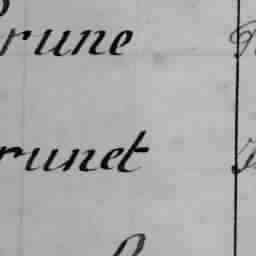 rune
runet